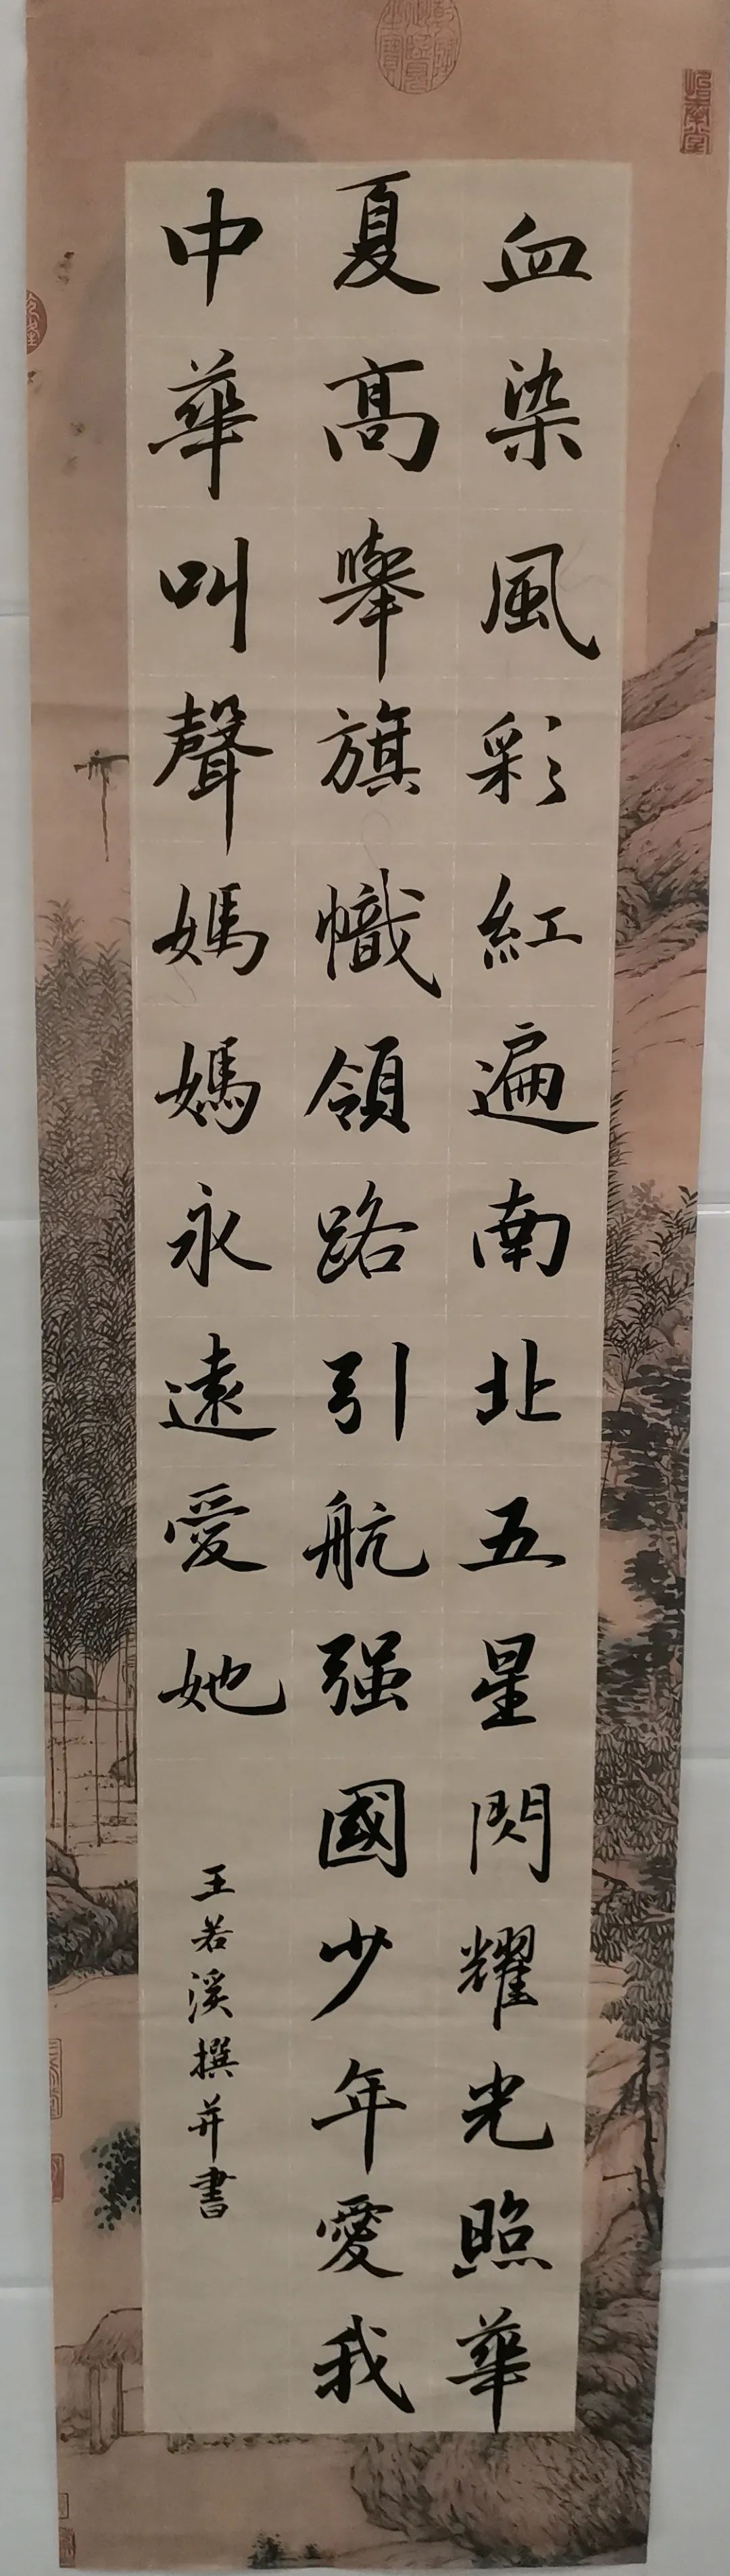 血染風彩紅遍南北五星閃耀光照華
夏高舉旗幟領路引航强國少年愛我
中華叫聲媽媽永遠愛她
王若溪撰并書